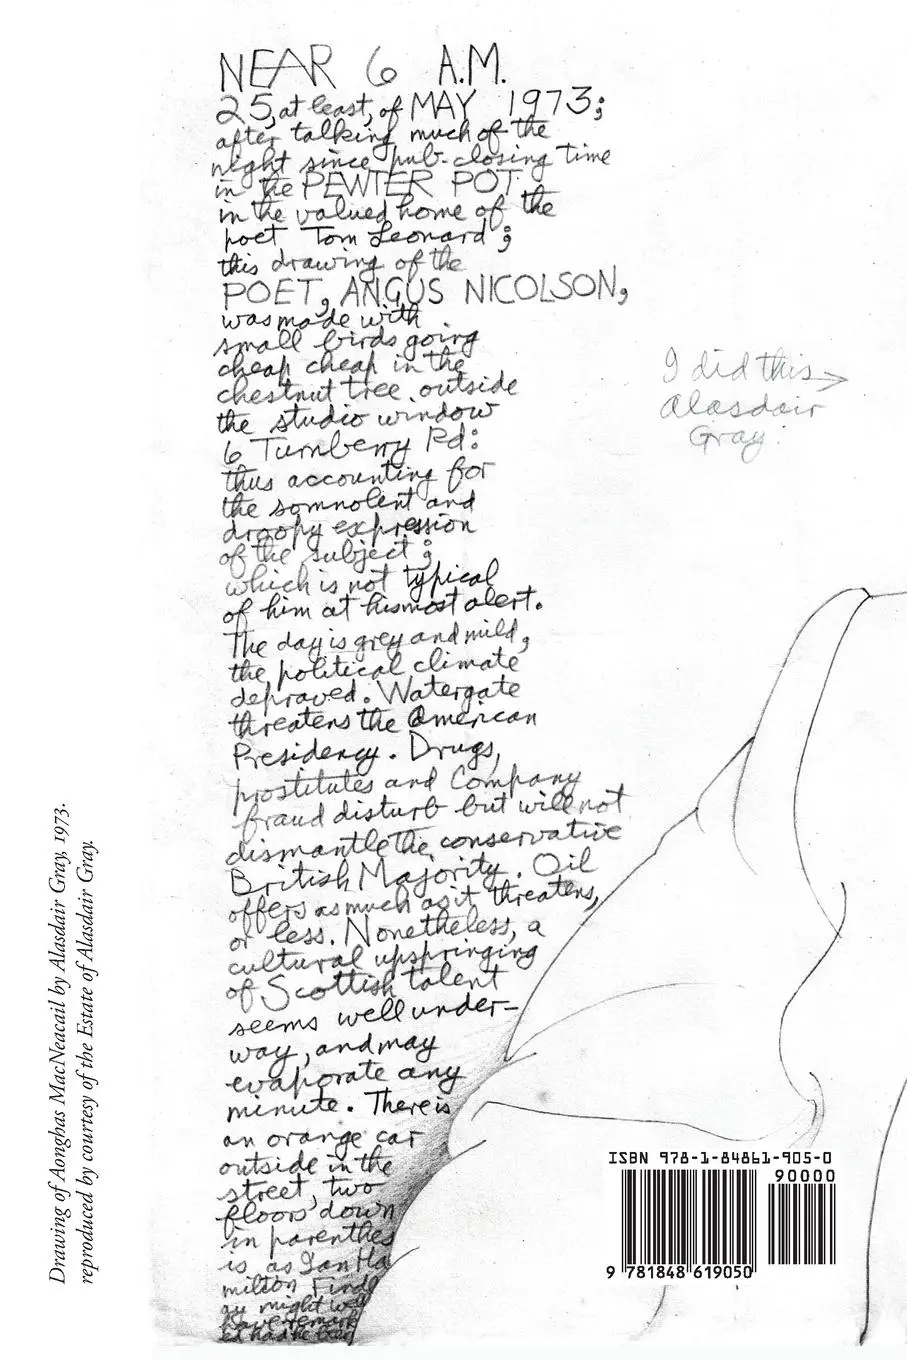 NEAR 6 A.M.
25, at least, of MAY 1973;
after talking much of the
night since pub-closing time
in the PEWTER POT
in the valued home of the
poet Tom Leonard;
this drawing of the
POET, ANGUS NICOLSON,
was made with
small birds going
cheap cheap in the
chestnut tree outside
the studio window
6 Turnberry Rd:
thus accounting for
the somnolent and
droopy expression
of the subject;
which is not typical
of him at his most alert.
The day is grey and mild,
the political climate
depraved. Watergate
threatens the American
Presidency. Drugs,
prostitutes and Company
fraud disturb but will not
dismantle the conservative
British Majority. Oil
offers as much as it threatens,
or less. Nonetheless, a
cultural upspringing
of Scottish talent
seems well under-
way, and may
evaporate any
minute. There is
an orange car
outside in the
street, two
floors down
in parenthes
is as Ian Ha
milton Finl
ay might well
have remark
ed had he been
I did this →
Alasdair
Gray.
Drawing of Aonghas MacNeacail by Alasdair Gray, 1973.
reproduced by courtesy of the Estate of Alasdair Gray.
ISBN 978-1-84861-905-0
90000
9 781848 619050